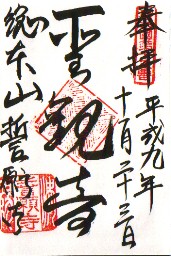 奉拝
平成九年
十一月二十三日
一言観音
総本山誓願寺